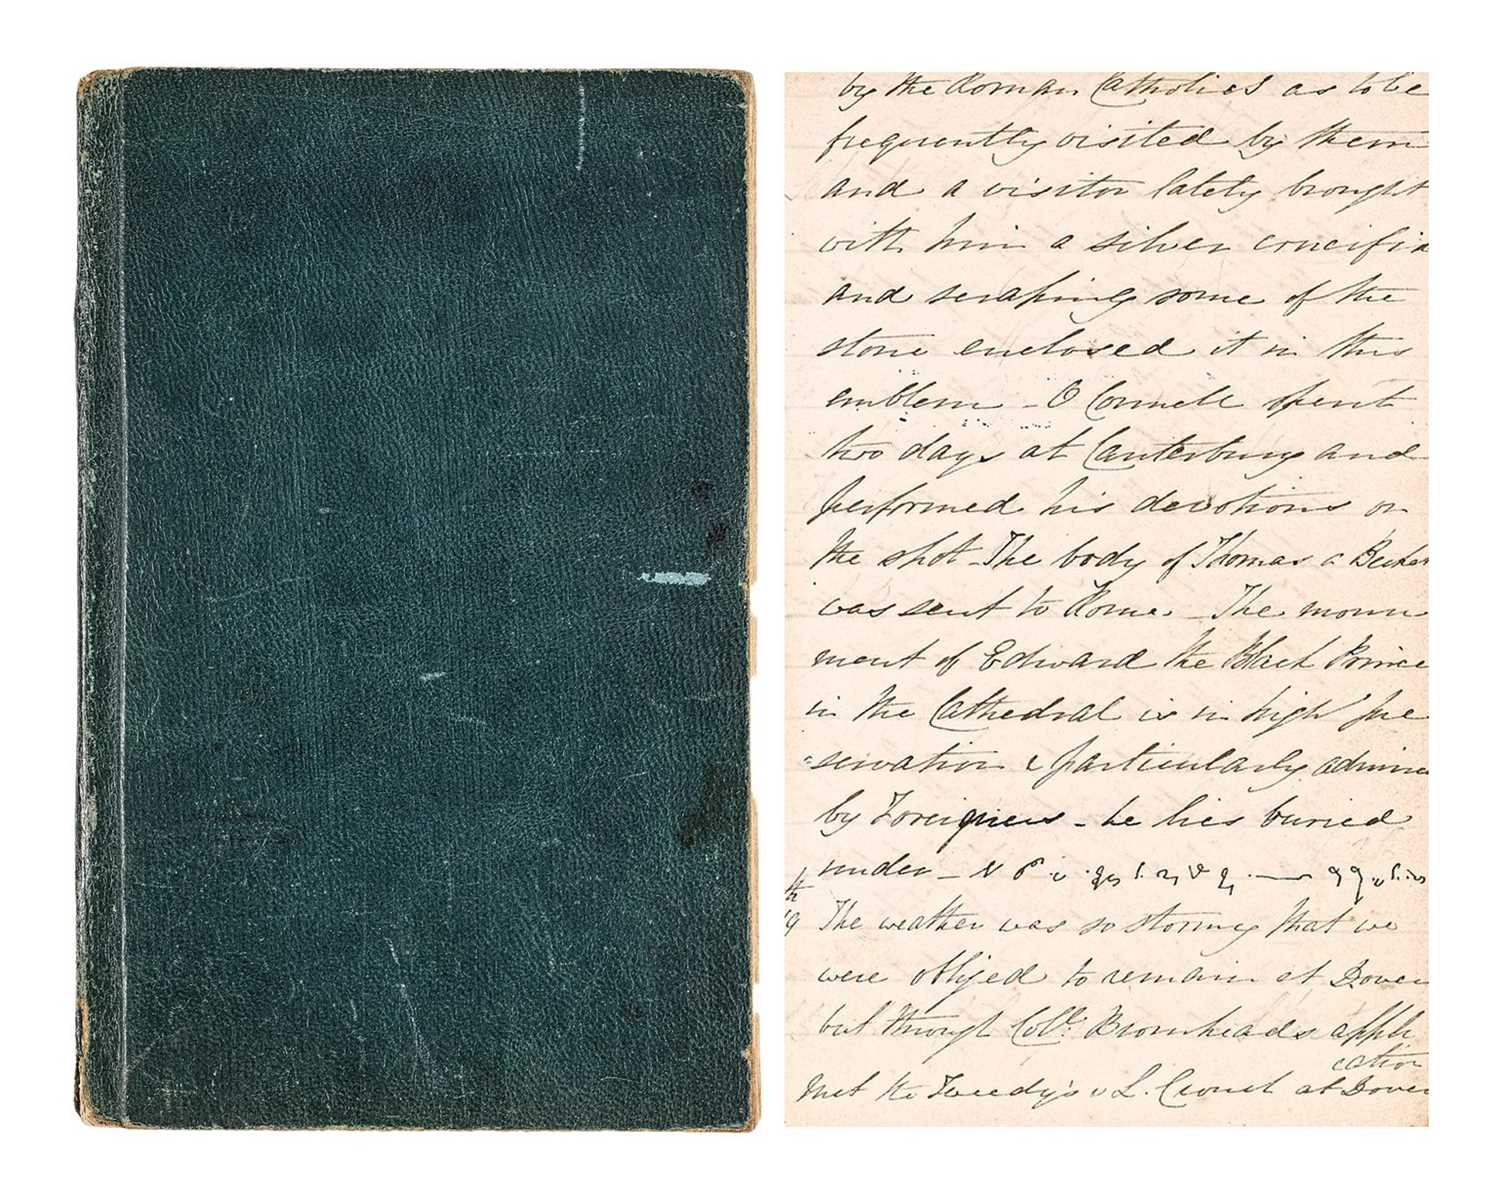 by the Roman Catholics as to be
frequently visited by them
and a visitor lately brought
with him a silver crucifix
and scraping some of the
stone enclosed it in this
emblem - O Connell spent
two days at Canterbury and
performed his devotions on
the spot - The body of Thomas a Becket
was sent to Rome - The monu
ment of Edward the Black Prince
in the Cathedral is in high pre
=servation & particularly admired
by Foreigners - he lies buried
under -
The weather was so stormy that we
were obliged to remain at Dover
but through Coll. Bromheads appli
cation
Met the Tweedy's & L. at Dover